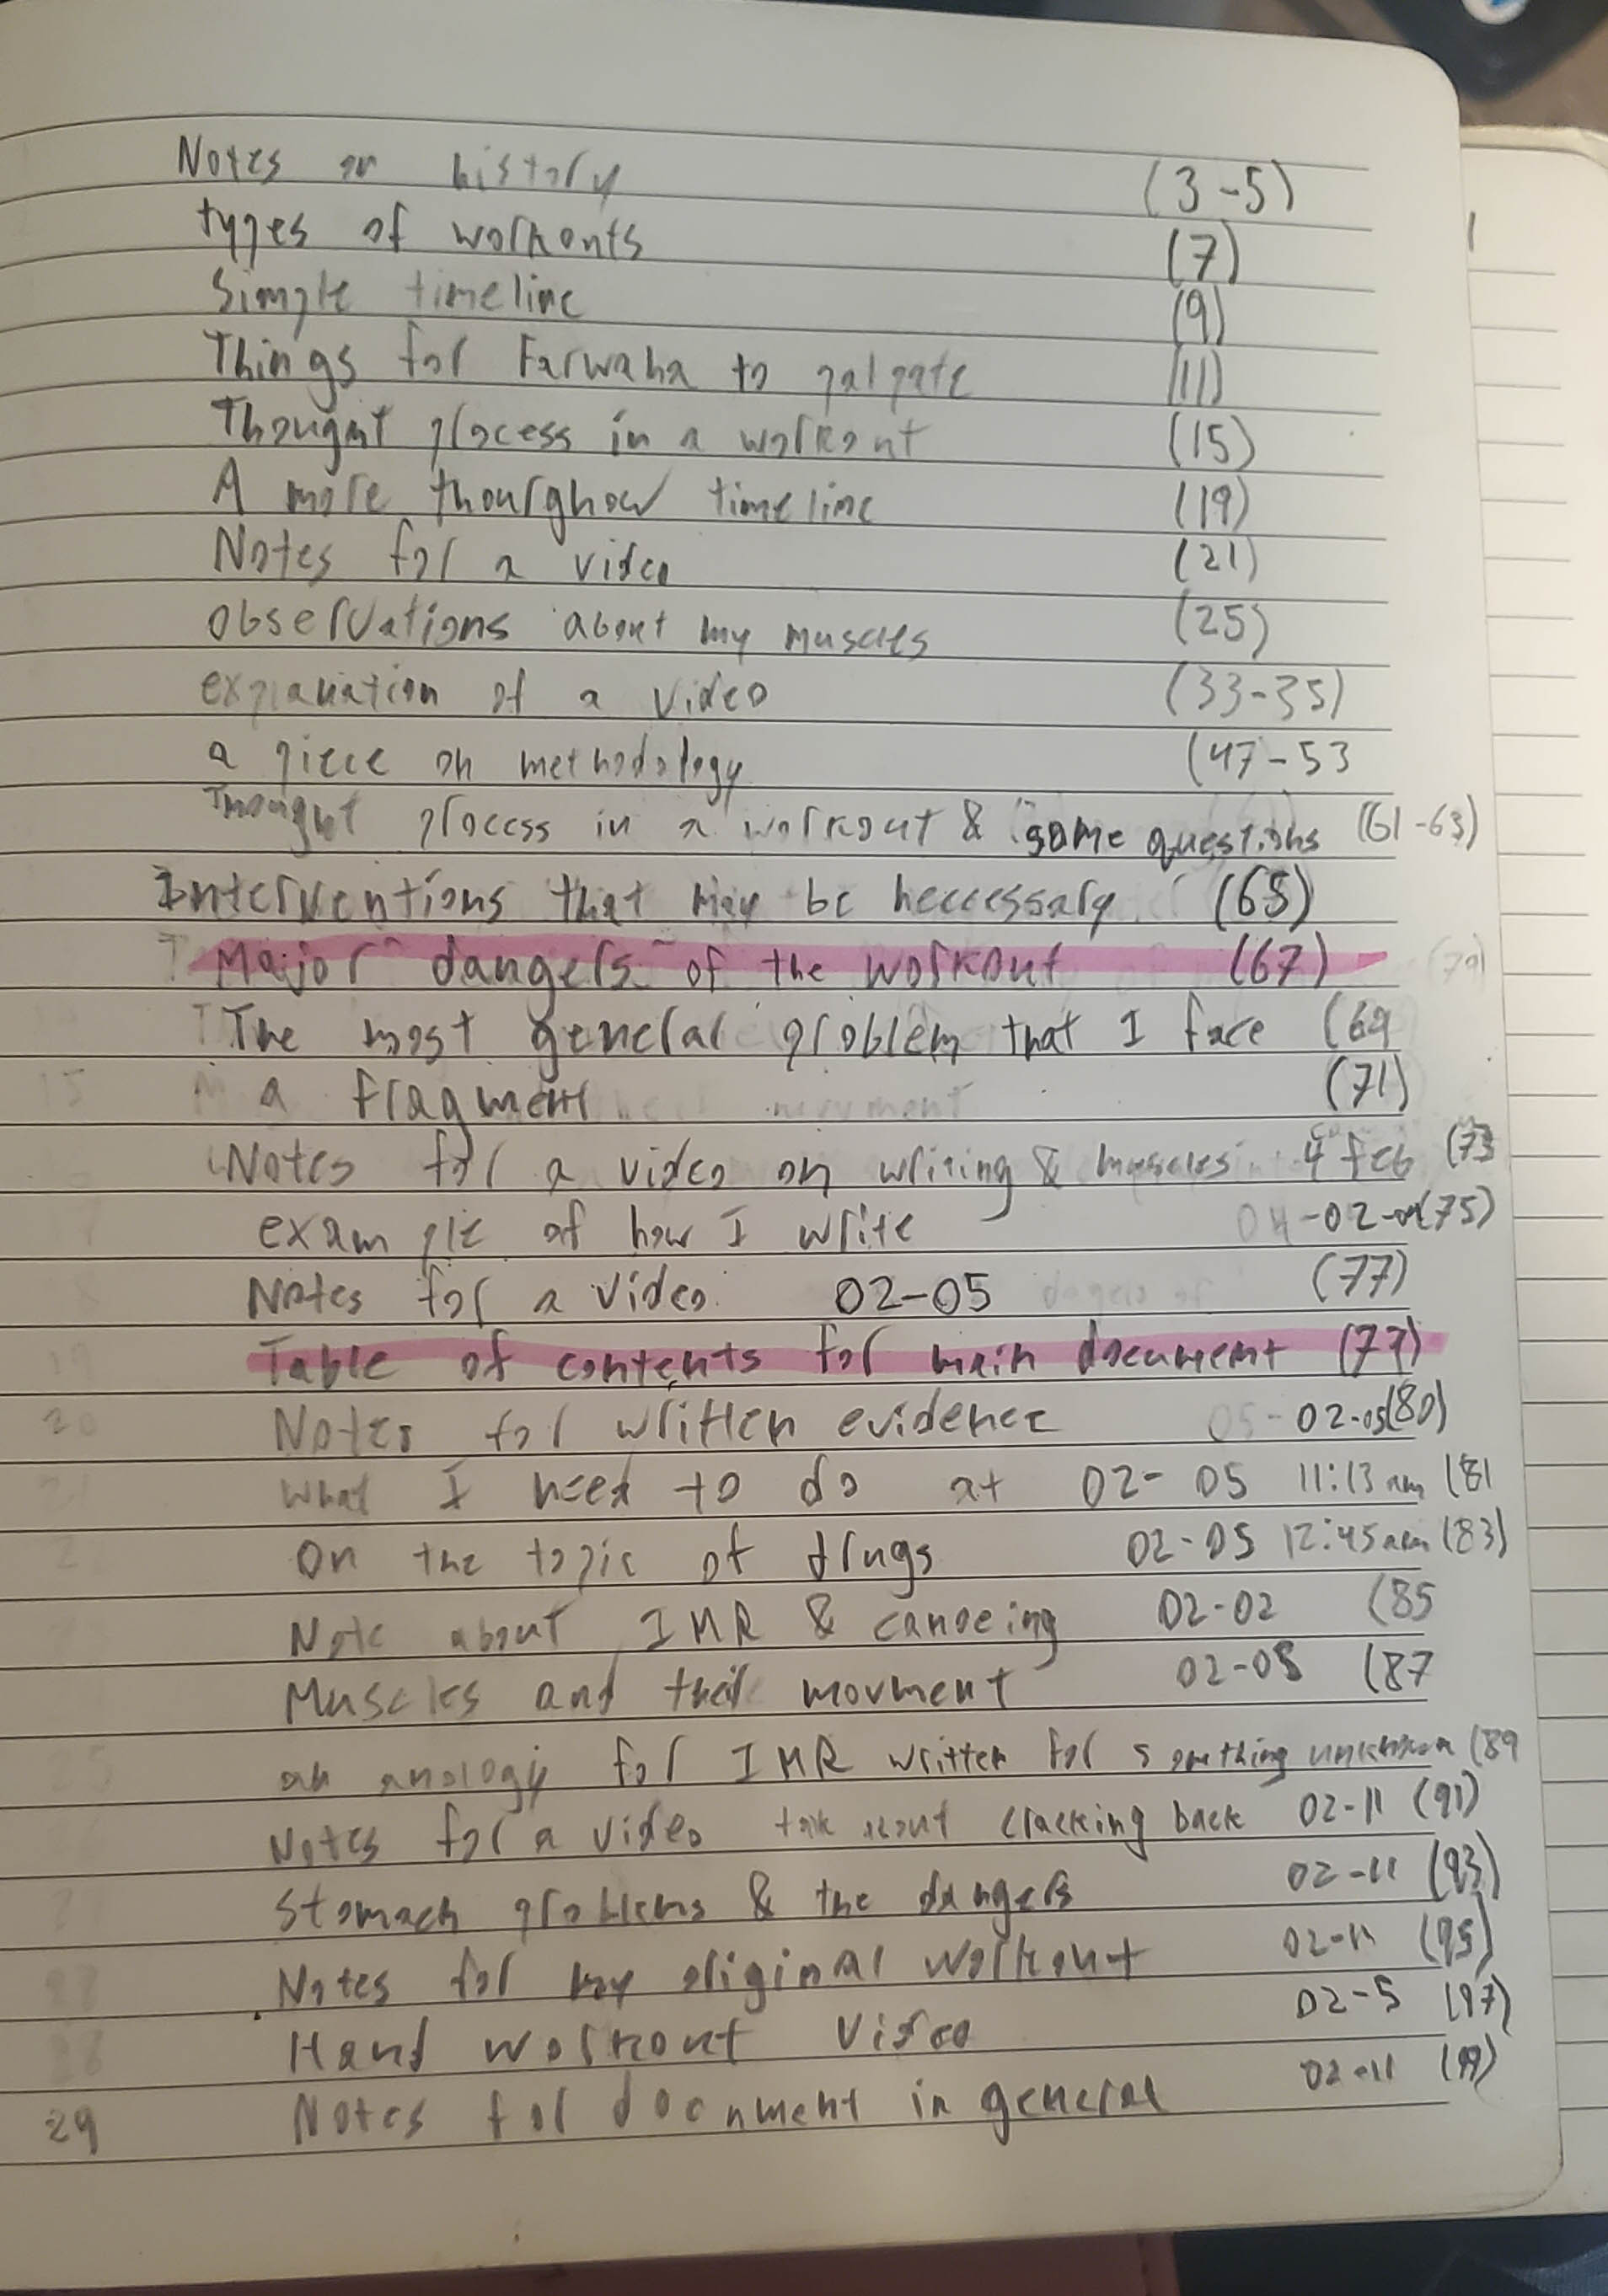 Notes on history (3-5)
types of workouts (7)
Simple timeline (9)
Things for Farwaha to palpate (11)
Thought process in a workout (15)
A more thourghow timeline (19)
Notes for a video (21)
observations about my muscles (25)
explanation of a video (33-35)
a piece on methodology (47-53
Thought process in a workout & some questions (61-63)
Interventions that may be neccessary (65)
Major dangers of the workout (67)
The most general problem that I face (69
a fragment (71)
Notes for a video on writing & muscles 4 feb (73
example of how I write 04-02- (75)
Notes for a video 02-05 (77)
Table of contents for main document (77)
Notes for written evidence 05-02-05 (80)
What I need to do at 02-05 11:13 am (81
On the topic of drugs 02-05 12:45am (83)
Note about IMR & canoeing 02-02 (85
Muscles and their movment 02-08 (87
an anology for IMR written for somthing unknown (89
Notes for a video talk about cracking back 02-11 (91)
Stomach problems & the dangers 02-11 (93)
Notes for my original workout 02-11 (95)
Hand workout Video 02-5 (97)
29 Notes for document in general 02-11 (99)